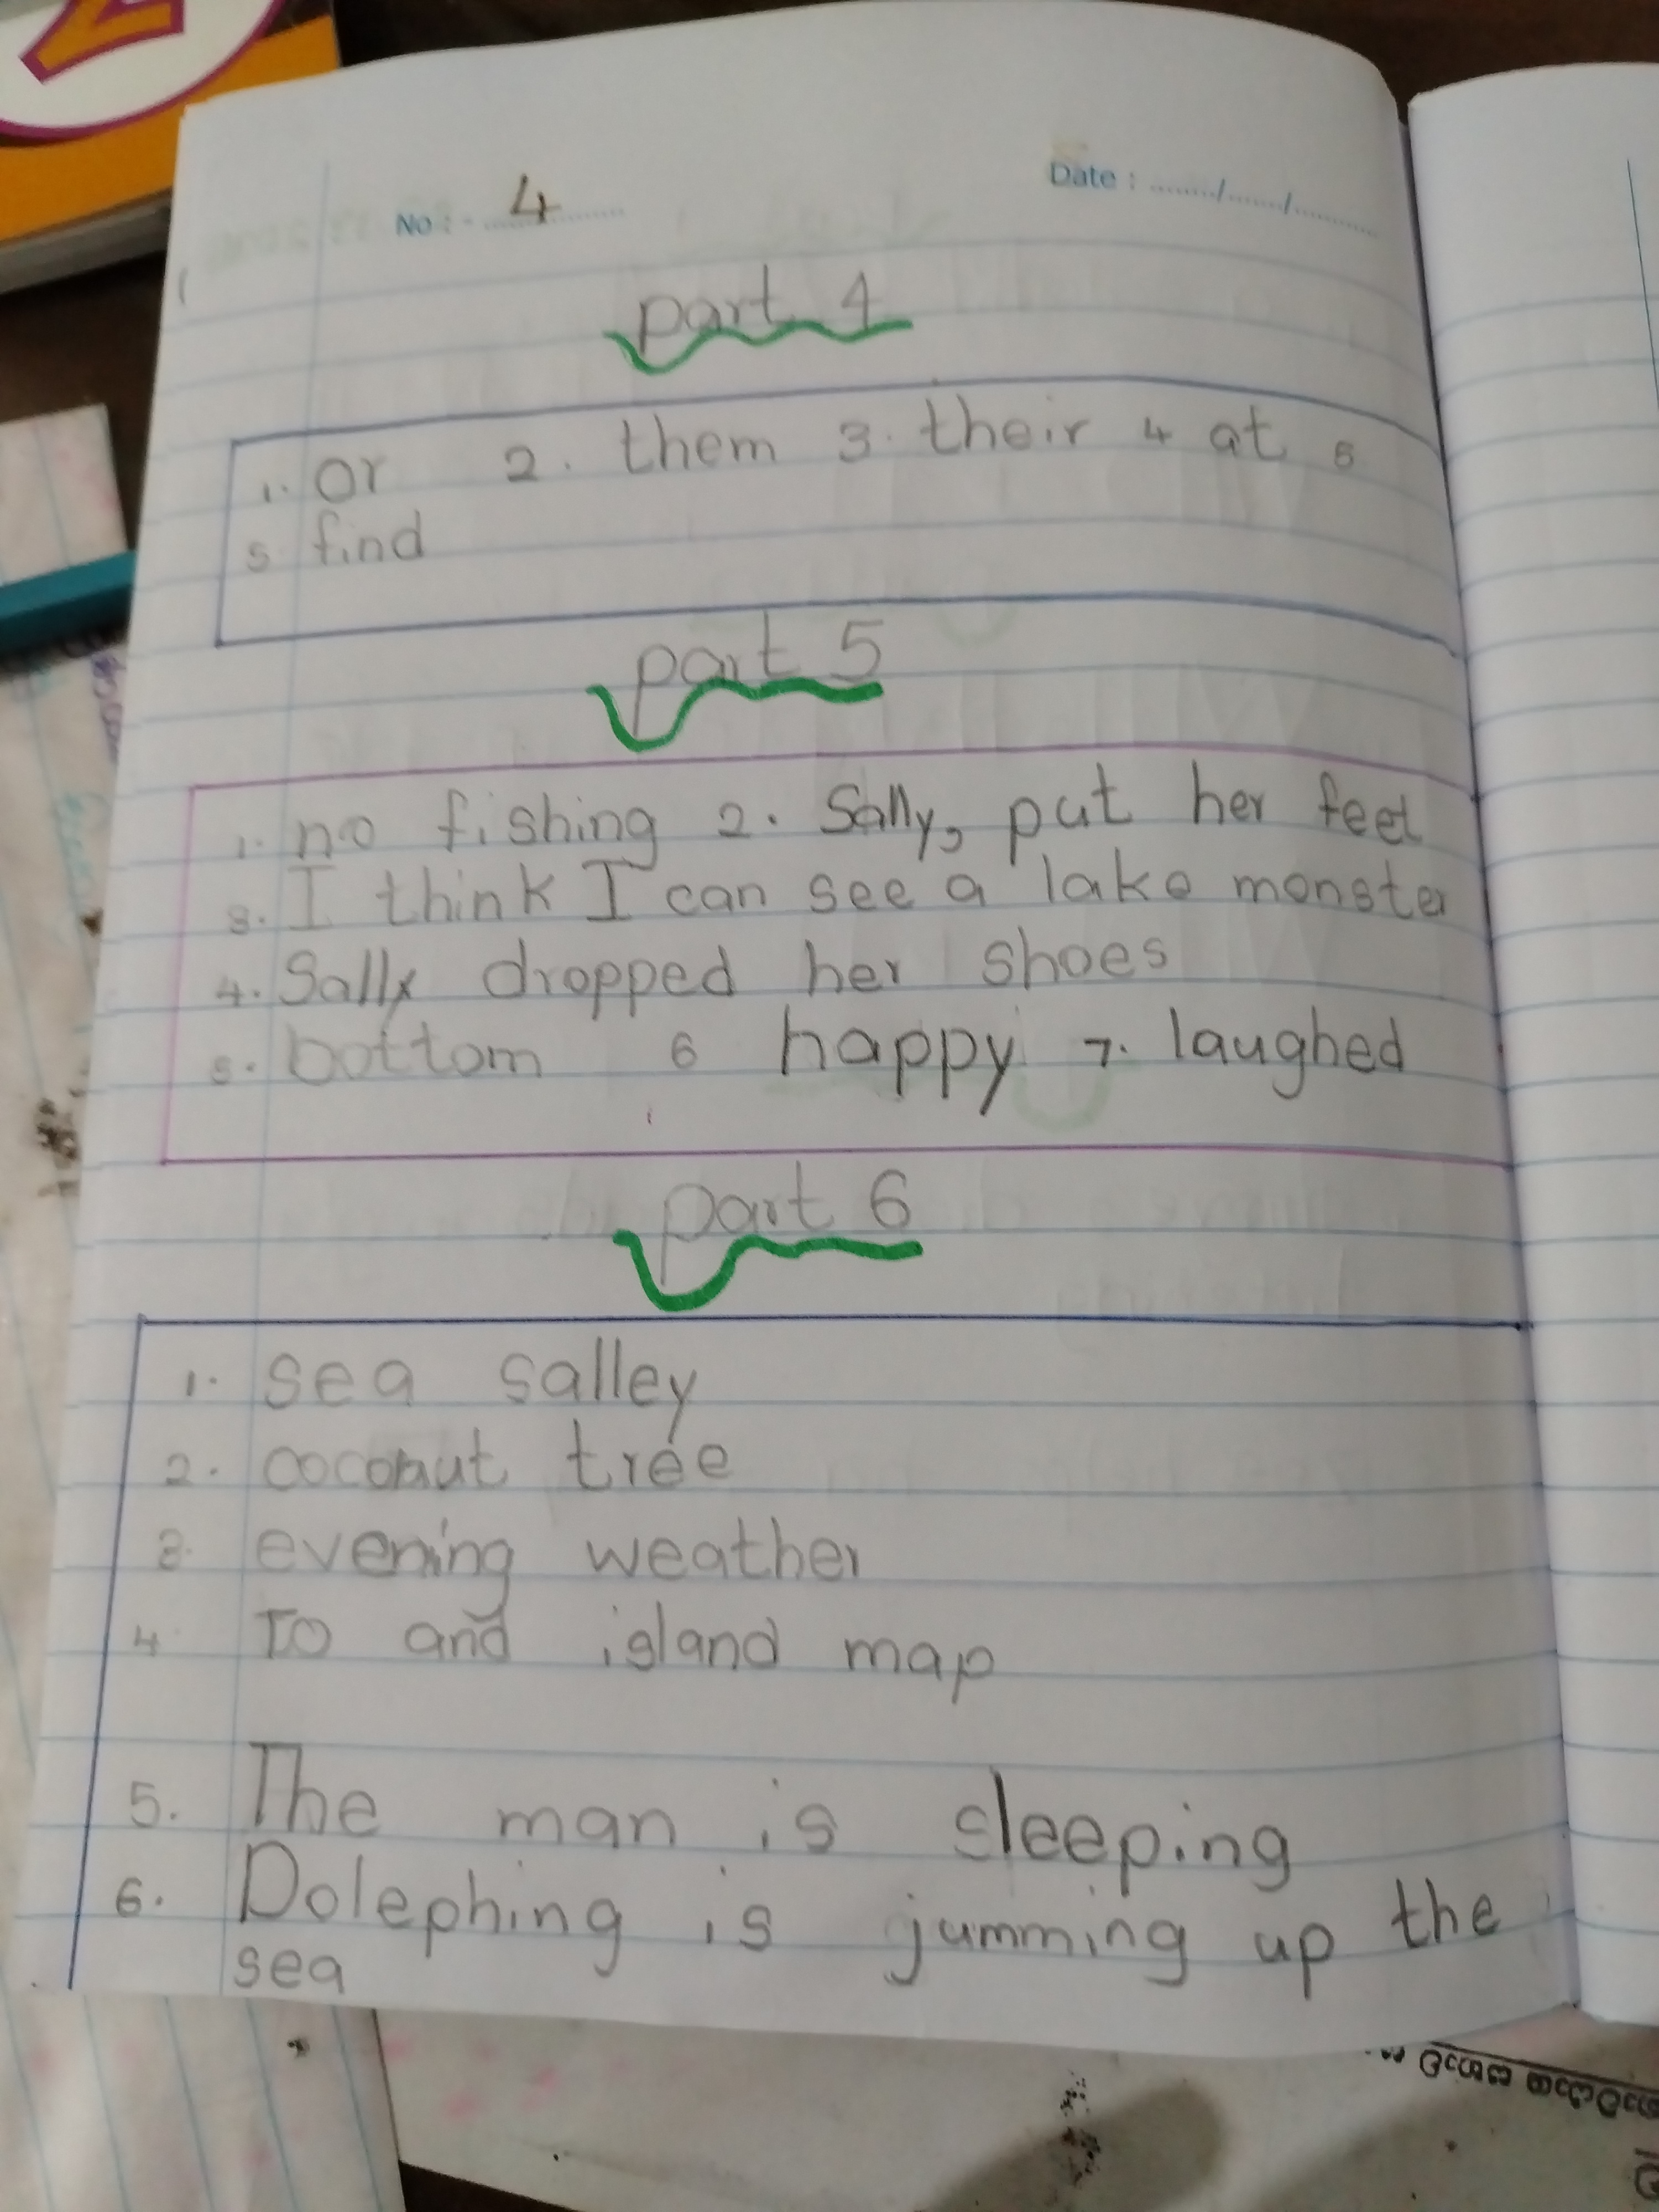 No :- 4
Date : ......../......./..........
part 4
1. or 2. them 3. their 4 at 5
5 find
part 5
1. no fishing 2. Sally, put her feet
3. I think I can see a lake monster
4. Sally dropped her shoes
5. bottom 6 happy 7. laughed
part 6
1. sea salley
2. coconut tree
3. evening weather
4 To and island map
5. The man is sleeping
6. Dolephing is jumming up the
sea